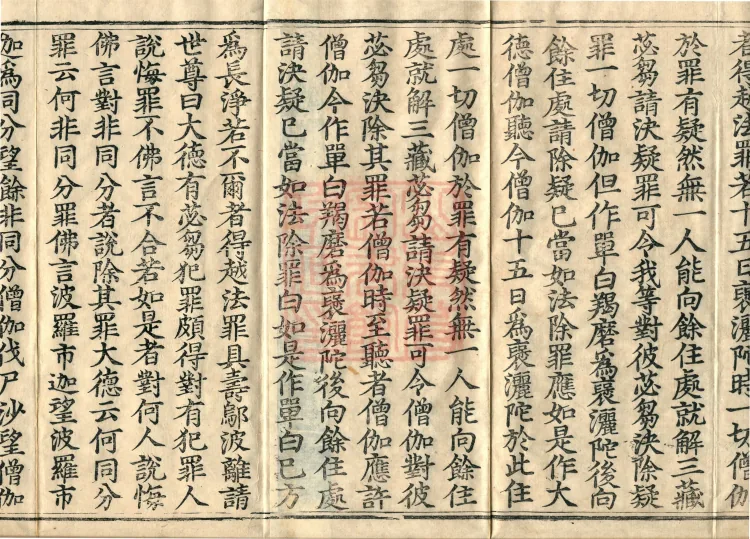 者得越法罪若十五日褒灑陀時一切僧伽
於罪有疑然無一人能向餘住處就解三藏
苾芻請決疑罪可令我等對彼苾芻決除疑
罪一切僧伽但作單白羯磨為褒灑陀後向
餘住處請除疑已當如法除罪應如是作大
德僧伽聽今僧伽十五日為褒灑陀於此住
處一切僧伽於罪有疑然無一人能向餘住
處就解三藏苾芻請決疑罪可令僧伽對彼
苾芻決除其罪若僧伽時至聽者僧伽應許
僧伽今作單白羯磨為褒灑陀後向餘住處
請決疑已當如法除罪白如是作單白已方
為長淨若不爾者得越法罪具壽鄔波離請
世尊曰大德有苾芻犯罪頗得對有犯罪人
說悔罪不佛言不合若如是者對何人說悔
佛言對非同分者說除其罪大德云何同分
罪云何非同分罪佛言波羅市迦望波羅市
迦為同分望餘非同分僧伽伐尸沙望僧伽